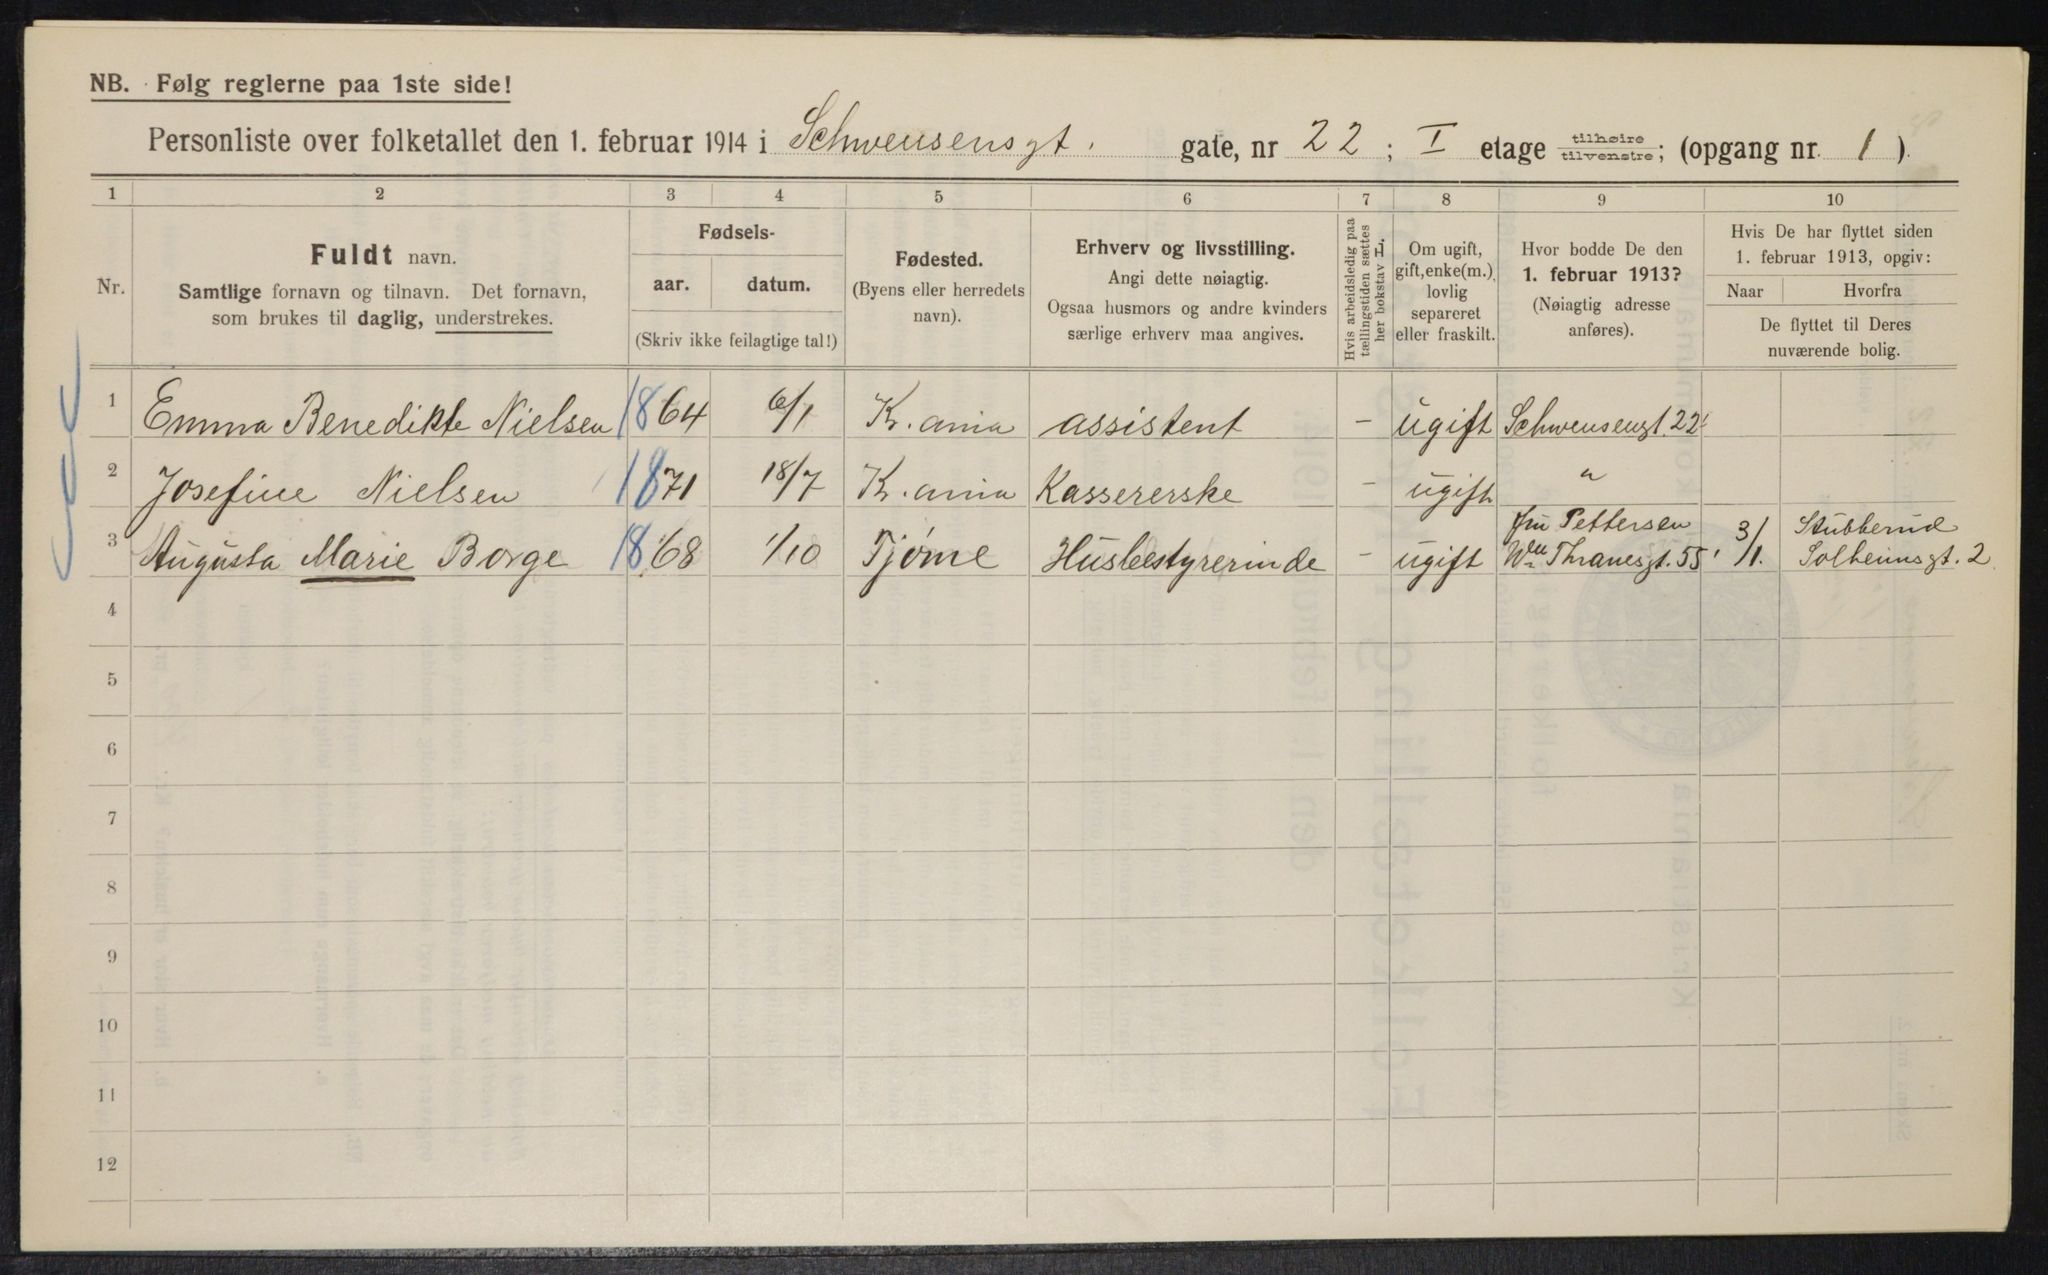 NB. Følg reglerne paa 1ste side!
Personliste over folketallet den 1. februar 1914 i Schwensensgt. gate, nr 22; I etage tilhøire/tilvenstre; (opgang nr. 1).
1 2 3 4 5 6 7 8 9 10
Nr.
Fuldt navn.
Samtlige fornavn og tilnavn. Det fornavn,
som brukes til daglig, understrekes.
Fødsels-
aar. datum.
(Skriv ikke feilagtige tal!)
Fødested.
(Byens eller herredets
navn).
Erhverv og livsstilling.
Angi dette nøiagtig.
Ogsaa husmors og andre kvinders
særlige erhverv maa angives.
Hvis arbeidsledig paa
tællingstiden sættes
her bokstav L.
Om ugift,
gift, enke(m.),
lovlig
separeret
eller fraskilt.
Hvor bodde De den
1. februar 1913?
(Nøiagtig adresse
anføres).
Hvis De har flyttet siden
1. februar 1913, opgiv:
Naar Hvorfra
De flyttet til Deres
nuværende bolig.
1 Emma Benedikte Nielsen 1864 6/1 Kr.ania assistent – ugift Schwensengt. 22
2 Josefine Nielsen 1871 18/7 Kr.ania Kassererske – ugift "
3 Augusta Marie Borge 1868 1/10 Tjøme Husbestyrerinde – ugift fru Pettersen 3/1. Stubberud
Wm Thranesgt. 55 Solheimsgt. 2
4
5
6
7
8
9
10
11
12